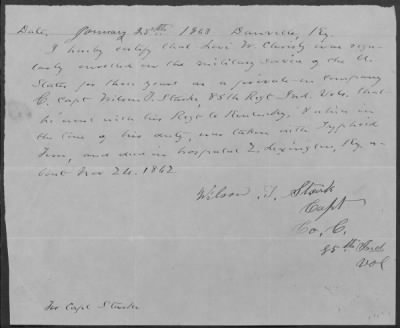 Date, January 25th 1863 Danville, Ky.
I hereby certify that Levi W. Christy was regu-
larly enrolled in the military service of the U.
States for three years as a private in company
C. Capt Wilson T. Stark, 85th Regt Ind. Vols. that
he went with his Regt to Kentucky, & while in
the line of his duty, was taken with Typhoid
Fever, and died in hospital Lexington, Ky. a-
bout Nov 24. 1862
Wilson T. Stark
Capt
Co. C.
85th Ind
Vol
Capt Stark